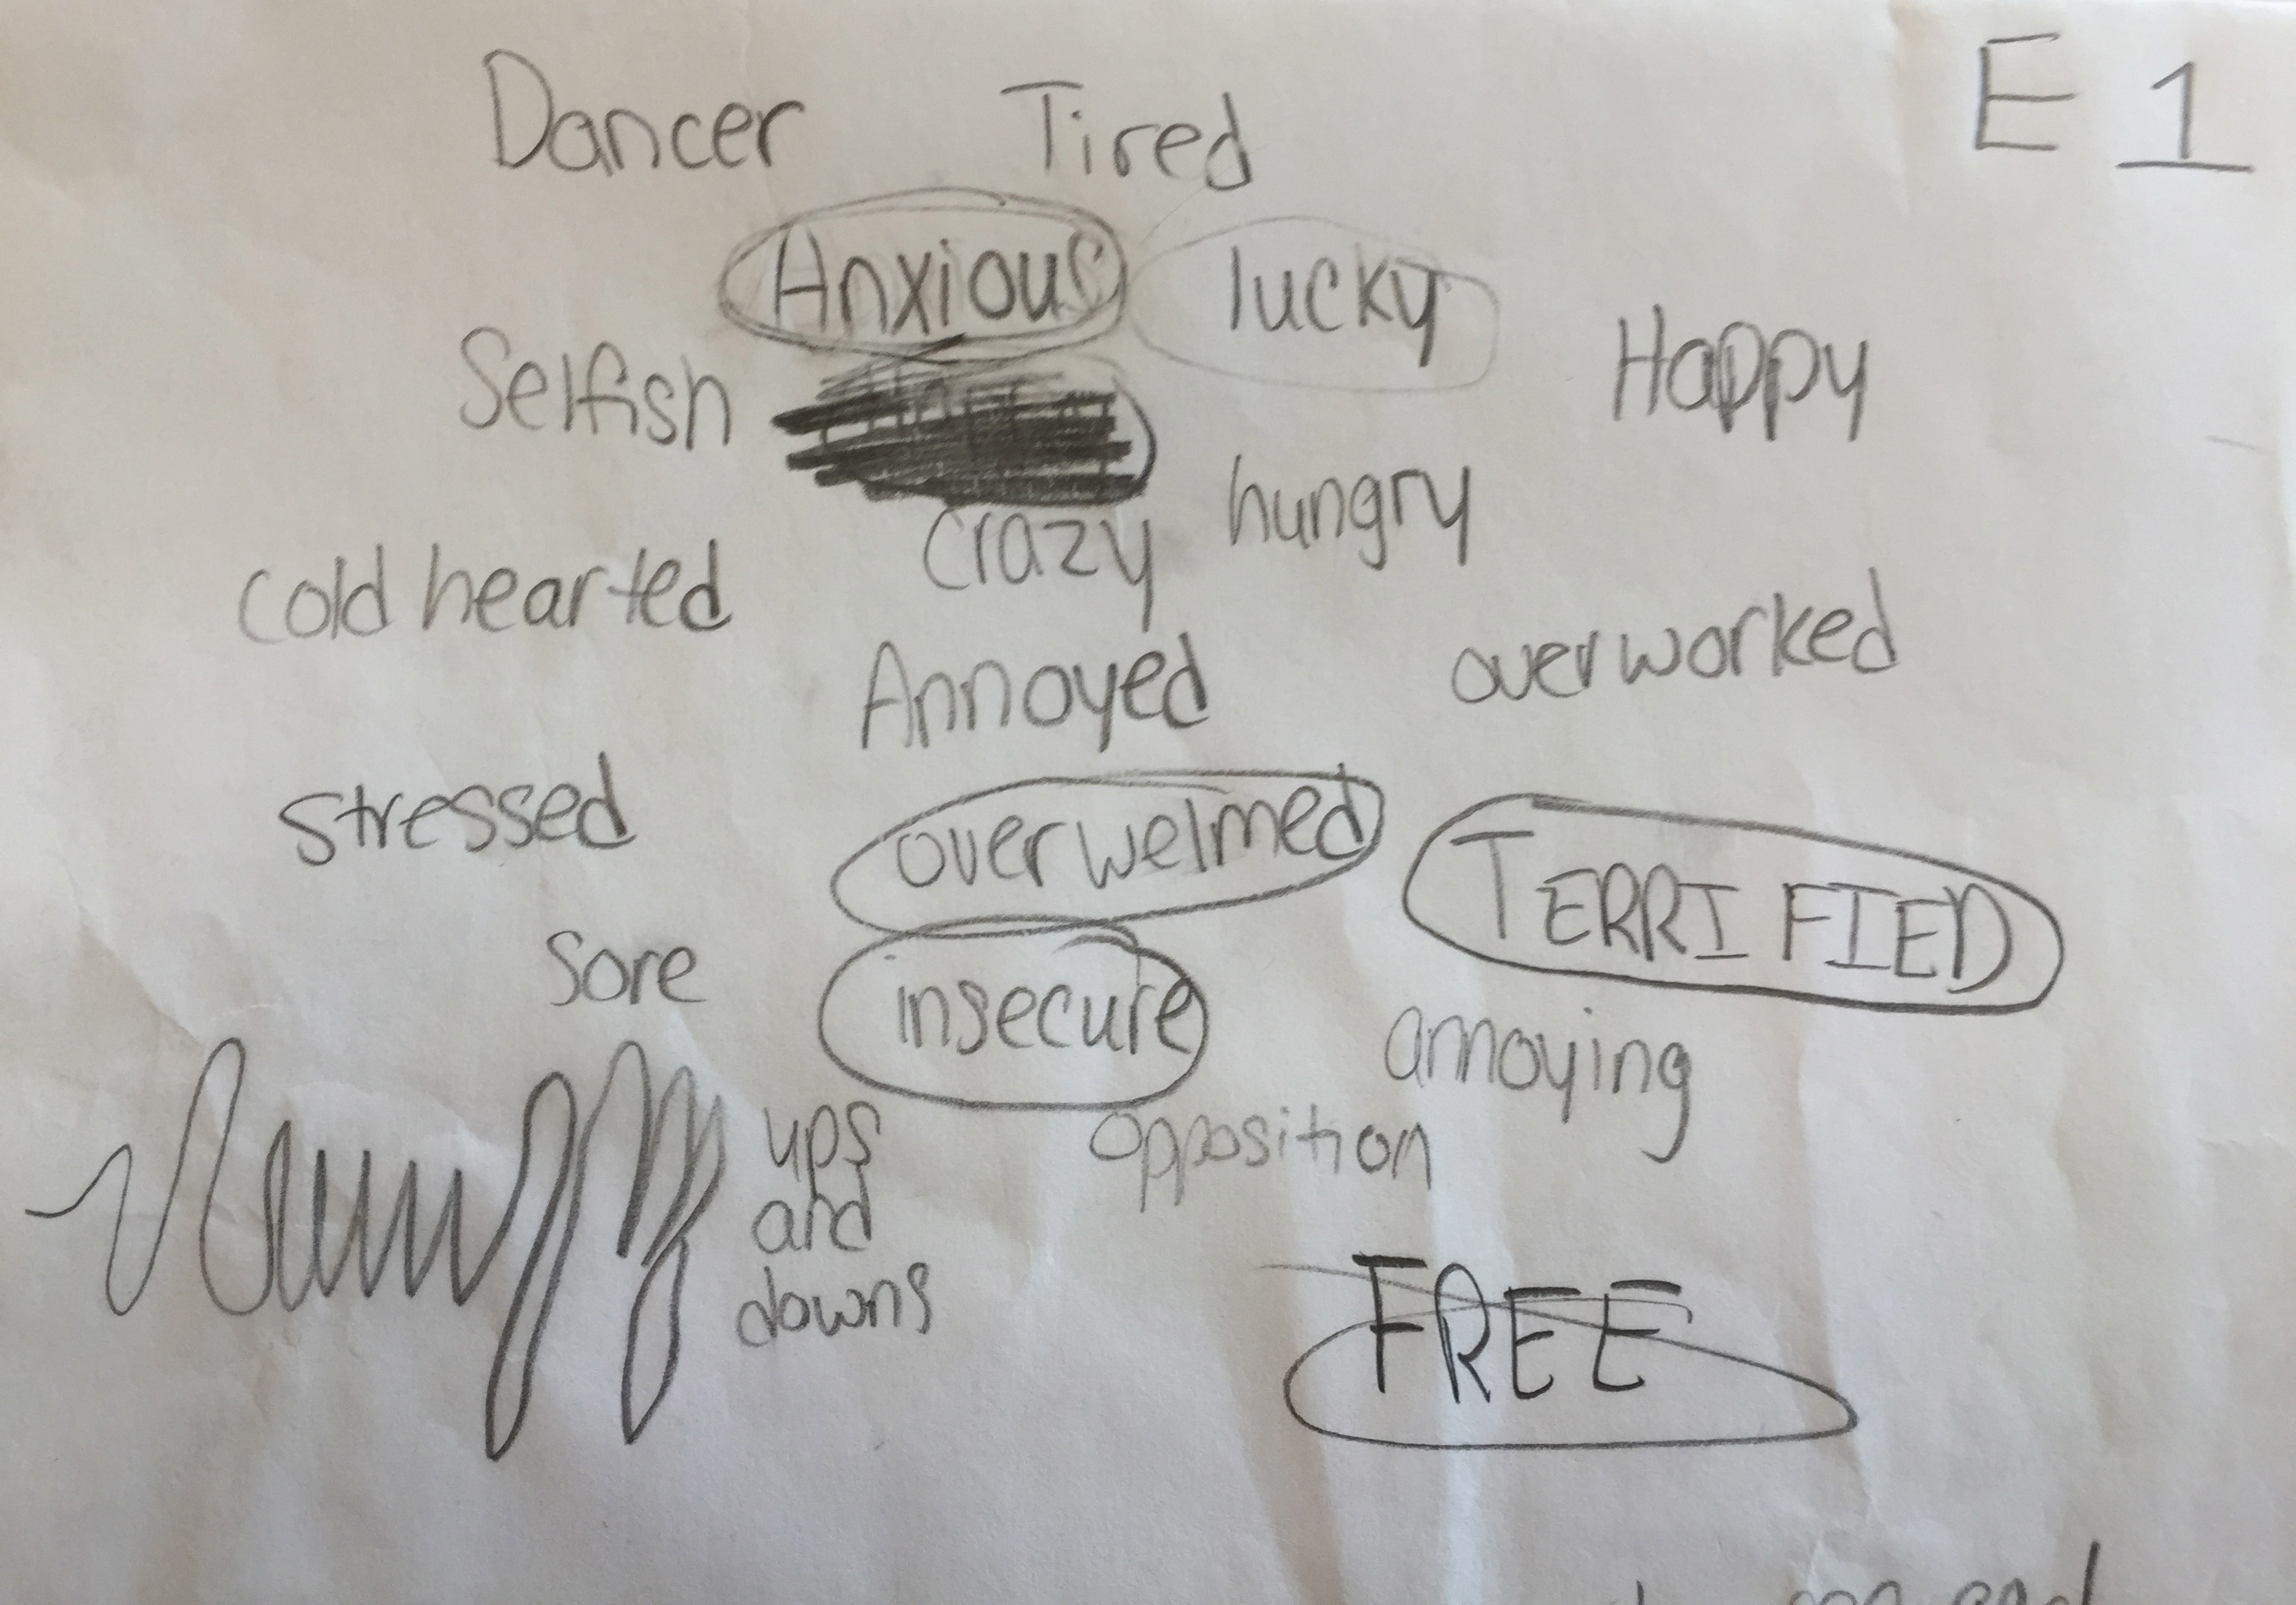 E 1
Dancer Tired
Anxious lucky
Selfish Happy
hungry
cold hearted crazy
Annoyed overworked
stressed overwelmed TERRIFIED
sore insecure annoying
ups
and
downs
opposition
FREE